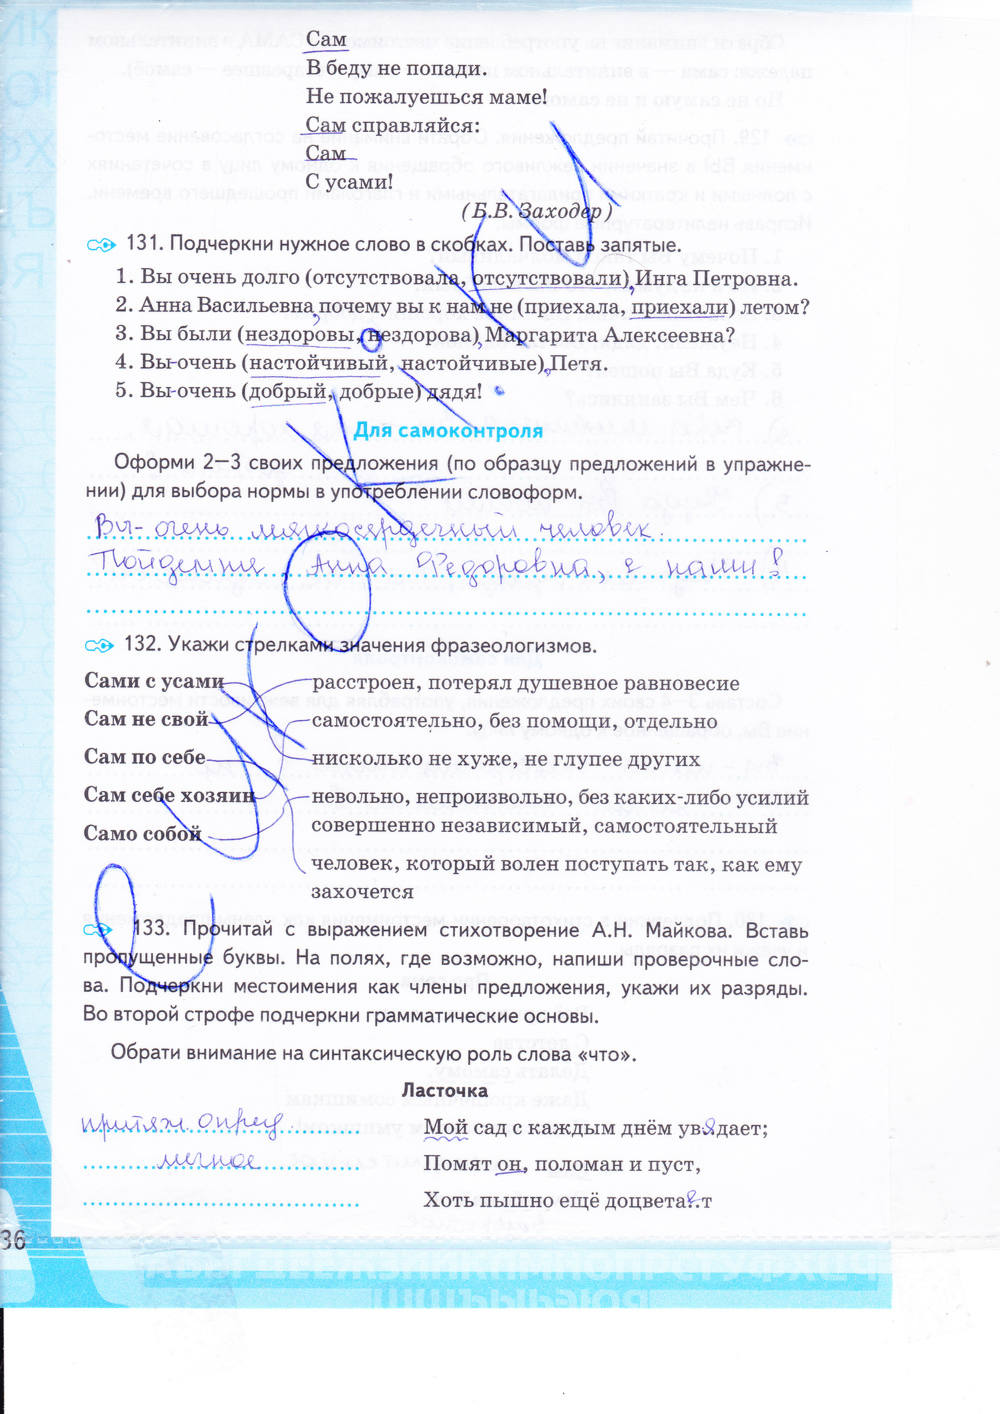 Сам
В беду не попади.
Не пожалуешься маме!
Сам справляйся:
Сам
С усами!
(Б.В. Заходер)
131. Подчеркни нужное слово в скобках. Поставь запятые.
1. Вы очень долго (отсутствовала, отсутствовали), Инга Петровна.
2. Анна Васильевна, почему вы к нам не (приехала, приехали) летом?
3. Вы были (нездоровы, нездорова), Маргарита Алексеевна?
4. Вы-очень (настойчивый, настойчивые), Петя.
5. Вы-очень (добрый, добрые) дядя!
Для самоконтроля
Оформи 2–3 своих предложения (по образцу предложений в упражне-
нии) для выбора нормы в употреблении словоформ.
Вы- очень мягкосердечный человек.
Пойдемте, Анна Федоровна, с нами!
132. Укажи стрелками значения фразеологизмов.
Сами с усами расстроен, потерял душевное равновесие
Сам не свой самостоятельно, без помощи, отдельно
Сам по себе нисколько не хуже, не глупее других
Сам себе хозяин невольно, непроизвольно, без каких-либо усилий
Само собой совершенно независимый, самостоятельный
человек, который волен поступать так, как ему
захочется
133. Прочитай с выражением стихотворение А.Н. Майкова. Вставь
пропущенные буквы. На полях, где возможно, напиши проверочные сло-
ва. Подчеркни местоимения как члены предложения, укажи их разряды.
Во второй строфе подчеркни грамматические основы.
Обрати внимание на синтаксическую роль слова «что».
Ласточка
притяж опред Мой сад с каждым днём увядает;
личное Помят он, поломан и пуст,
Хоть пышно ещё доцветает
36